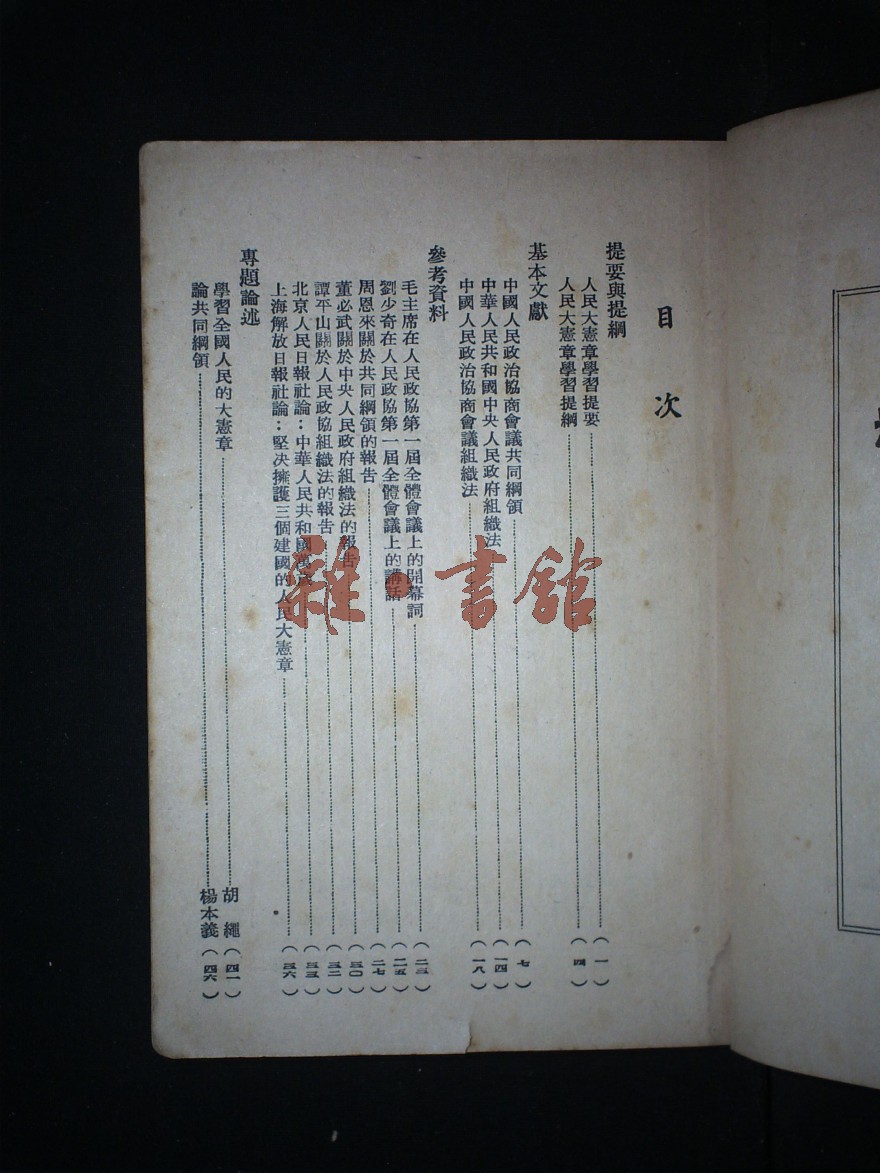 目次
提要與提綱
人民大憲章學習提要……(一)
人民大憲章學習提綱……(四)
基本文獻
中國人民政治協商會議共同綱領……(七)
中華人民共和國中央人民政府組織法……(一四)
中國人民政治協商會議組織法……(一八)
參考資料
毛主席在人民政協第一屆全體會議上的開幕詞……(二三)
劉少奇在人民政協第一屆全體會議上的講話……(二五)
周恩來關於共同綱領的報告……(二七)
董必武關於中央人民政府組織法的報告……(三〇)
譚平山關於人民政協組織法的報告……(三二)
北京人民日報社論：中華人民共和國……(三五)
上海解放日報社論：堅決擁護三個建國的人民大憲章……(三六)
專題論述
學習全國人民的大憲章……胡繩(四一)
論共同綱領……楊本義(四六)
雜書館